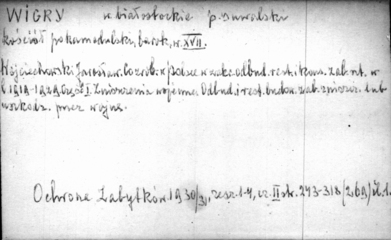 WIGRY w. białostockie p. suwalski
Kościół pokamedulski, barok, w. XVII.
Wojciechowski Jarosław. Co zrob. w Polsce w zakr. odbud. rest. i kons. zab. nt. w
l. 1919-1929. Część I. Zniszczenia wojenne. Odbud. i rest. budow. zab. zniszcz. lub
uszkodz. przez wojnę.
Ochrona Zabytków. 1930/31, zesz. 1-4, cz. II str. 243-318 (269) il. 1.